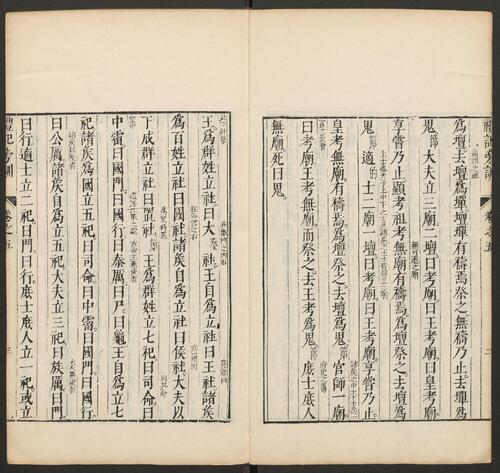 卷之五
為壇去壇為墠壇墠有禱焉祭之無禱乃止去墠為
鬼大夫立三廟二壇曰考廟曰王考廟曰皇考廟
享嘗乃止顯考祖考無廟有禱焉為壇祭之去壇為
鬼適士二廟一壇曰考廟曰王考廟享嘗乃止
皇考無廟有禱焉為壇祭之去壇為鬼官師一廟
曰考廟王考無廟而祭之去王考為鬼庶士庶人
無廟死曰鬼
王為群姓立社曰大社王自為立社曰王社諸侯
為百姓立社曰國社諸侯自為立社曰侯社大夫以
下成群立社曰置社王為群姓立七祀曰司命曰
中霤曰國門曰國行曰泰厲曰戶曰竈王自為立七
祀諸侯為國立五祀曰司命曰中霤曰國門曰國行
曰公厲諸侯自為立五祀大夫立三祀曰族厲曰門
曰行適士立二祀曰門曰行庶士庶人立一祀或立
卷之五